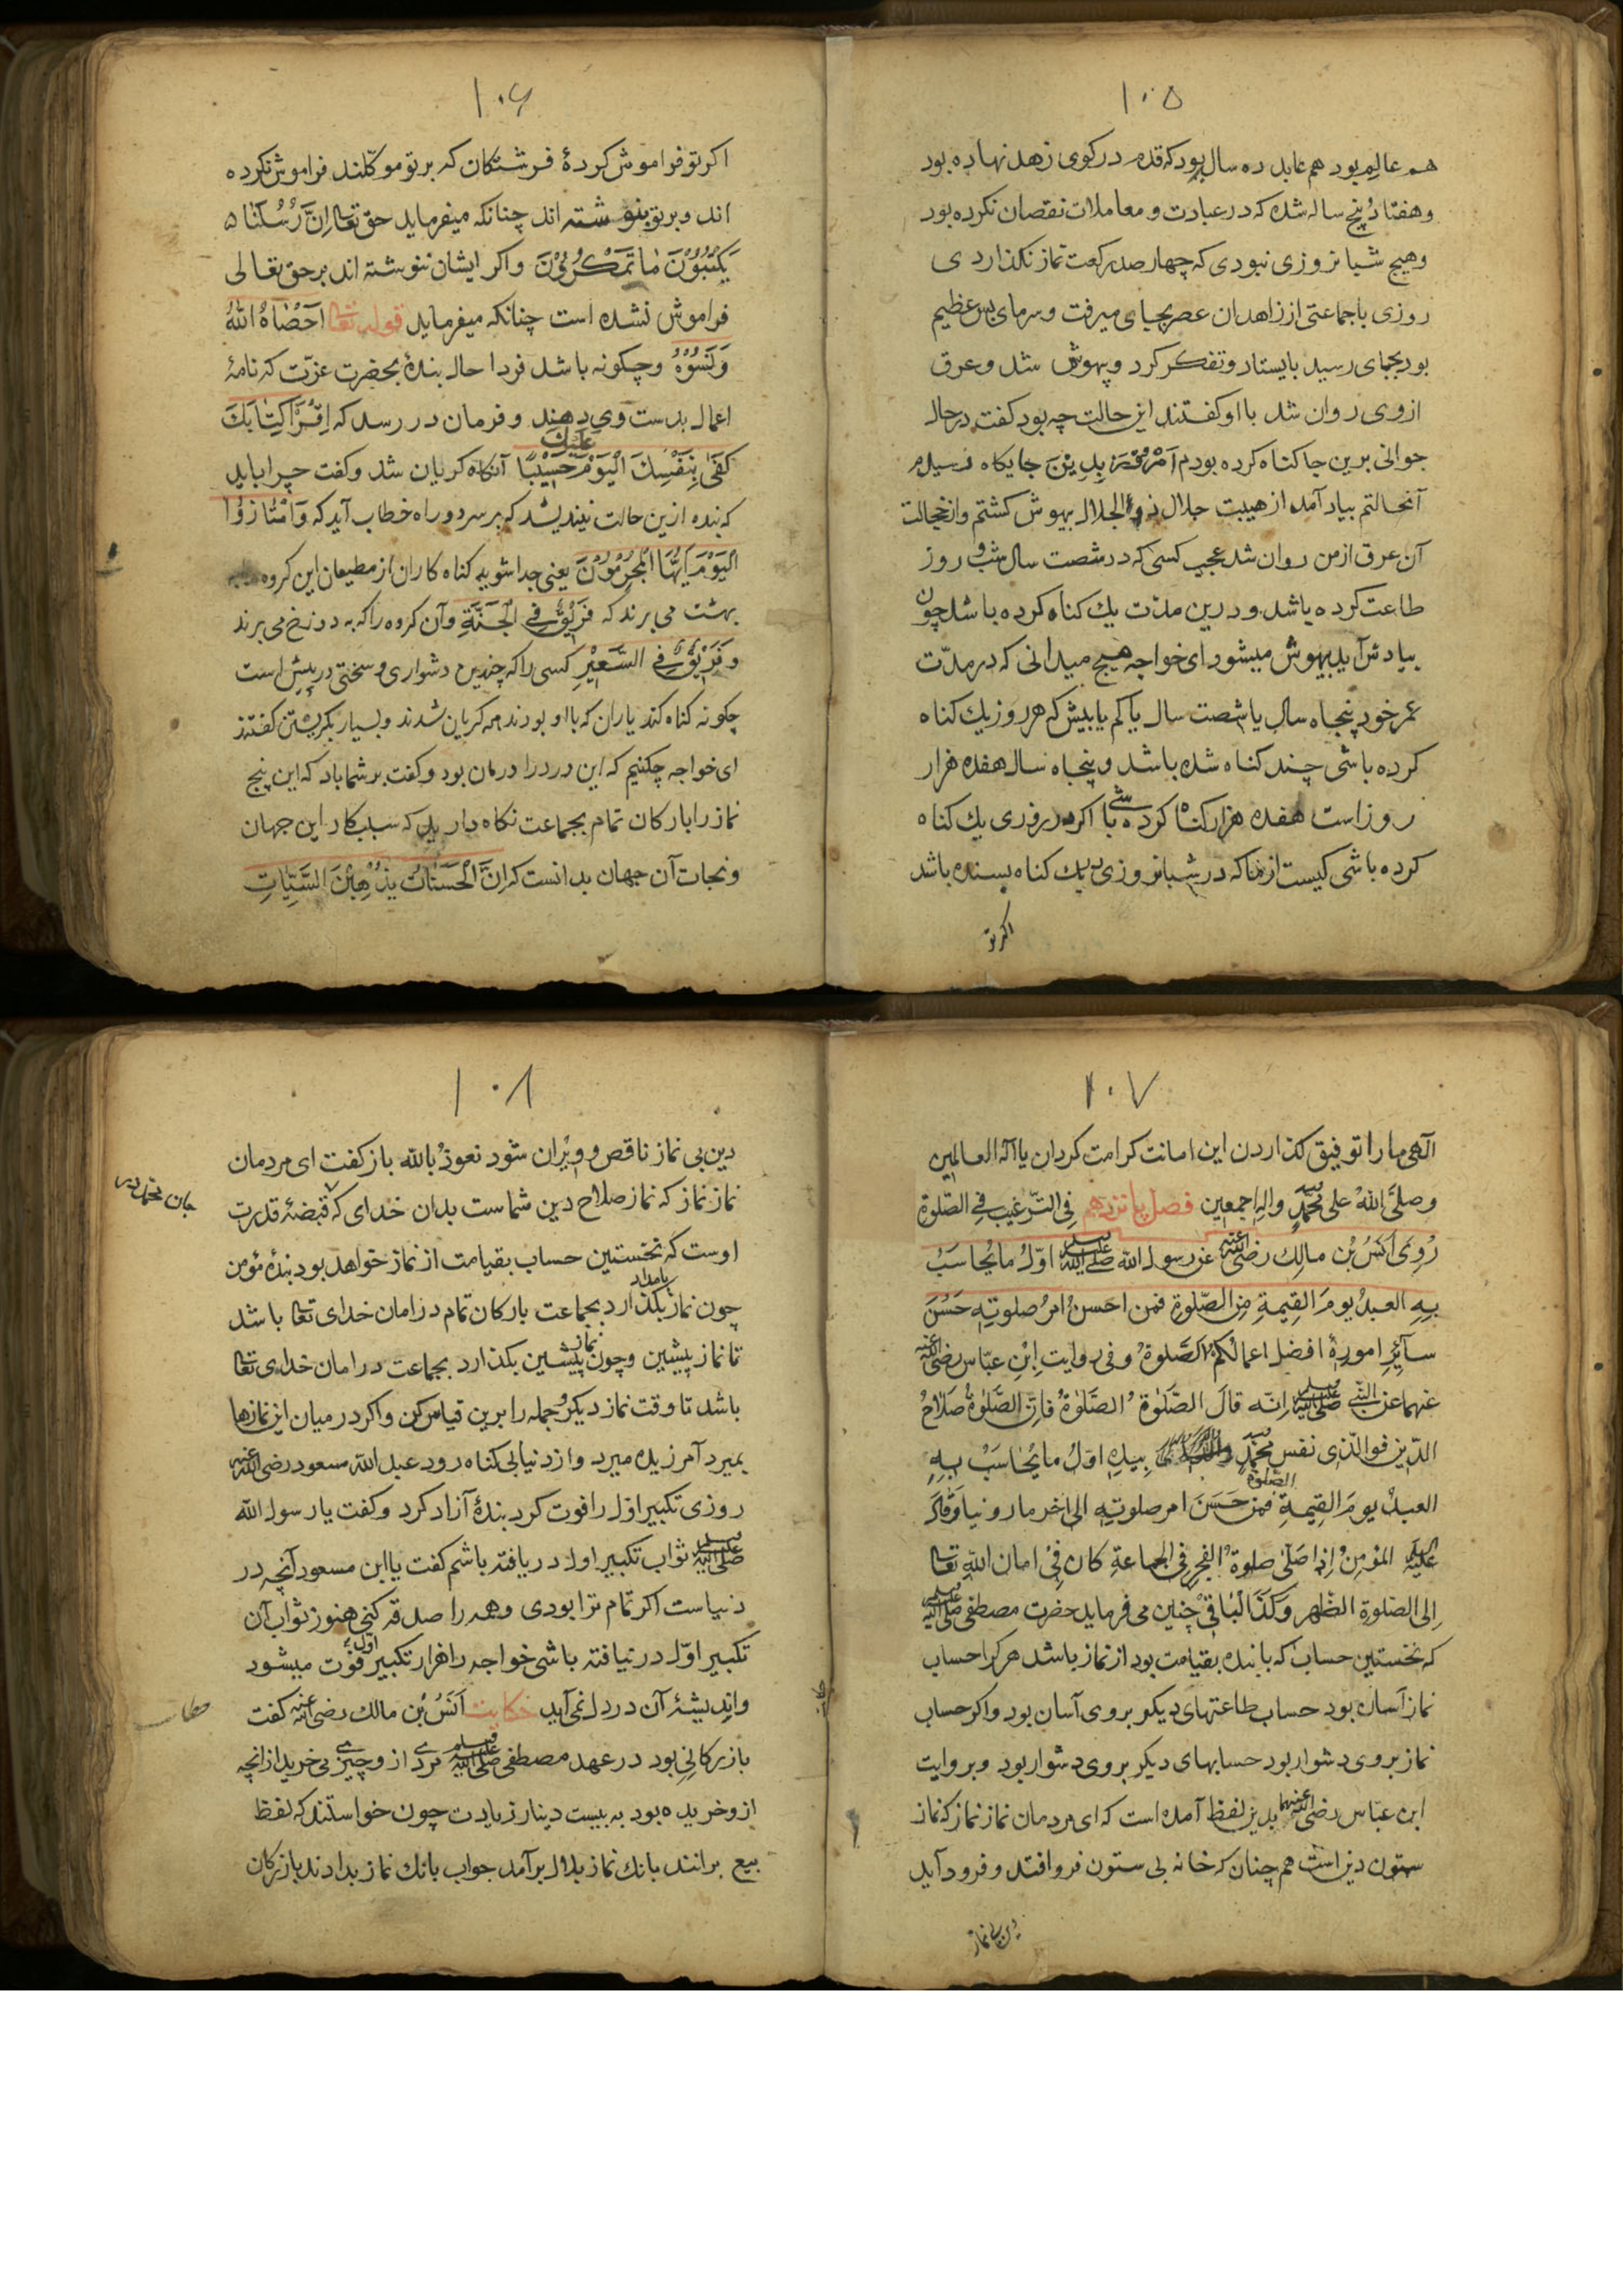 ١٠٥
هم عالم بود هم عابد ده سال بود که قدم در کوی زهد نهاده بود
و هفتاد پنج ساله شده که در عبادت و معاملات نقصان نکرده بود
و هیچ شبانروزی نبودی که چهار صد رکعت نماز نکذاردی
روزی با جماعتی از زاهدان عصر بجای میرفت و سرمای بس عظیم
بود بجای رسید بایستاد و تفکر کرد و بیهوش شد و عرق
از وی روان شد با او کفتند این حالت چه بود کفت در حال
جوانی برین جا کناه کرده بودم امروز بدین جایکاه رسیدم
آنحالتم بیاد آمد از هیبت جلال ذو الجلال بیهوش کشتم و از خجالت
آن عرق از من روان شد عجب کسی که در شصت سال شب و روز
طاعت کرده باشد و درین مدت یك کناه کرده باشد چون
بیادش آید بیهوش میشود ای خواجه هیچ میدانی که در مدّت
عمر خود پنجاه سال یا شصت سال یا کم یا بیش که هر روز یك کناه
کرده باشی چند کناه شده باشد و پنجاه سال هفده هزار
روز است هفده هزار کناه کرده باشی اکر در روزی یك کناه
کرده باشی کیست از ما که در شبانروزی بیك کناه بسنده باشد
اکر تو
١٠۶
اکر تو فراموش کردهٔ فرشتکان که بر تو موکّلند فراموش نکرده
اند و بر تو بنوشته اند چنانکه میفرماید حق تعا اِنَّ رُسُلَنَا
یَکْتُبُوْنَ مَا تَمْکُرُوْنَ و اکر ایشان ننوشته اند بر حق تعالی
فراموش نشده است چنانکه میفرماید قوله تعا اَحْصَاهُ اللّٰهُ
وَنَسُوْهُ و چکونه باشد فردا حال بندهٔ بحضرت عزّت که نامهٔ
اعمال بدست وی دهند و فرمان در رسد که اِقْرَأْ کِتَابَكَ
کَفَی بِنَفْسِكَ الْیَوْمَ عَلَیْكَ حَسِیْبًا آنکاه کریان شد و کفت چرا باید
که بنده ازین حالت نیندیشد که بر سر دو راه خطاب آید که وَامْتَازُوْا
الْیَوْمَ اَیُّهَا الْمُجْرِمُوْنَ یعنی جدا شوید کناه کاران از مطیعان این کروه
بهشت می برند که فَرِیْقٌ فِی الْجَنَّةِ و آن کروه را که به دوزخ می برند
وَفَرِیْقٌ فِی السَّعِیْرِ کسی را که چندین دشواری و سختی در پیش است
چکونه کناه کند یاران که با او بودند همه کریان شدند و بسیار بکریستن کفتند
ای خواجه چکنیم که این درد را درمان بود و کفت بر شما باد که این پنج
نماز را بارکان تمام بجماعت نکاه دارید که سبب کار این جهان
و نجات آن جهان بدانست که اِنَّ الْحَسَنَاتِ یُذْهِبْنَ السَّیِّئَاتِ
١٠٧
الٓهی ما را توفیق کذاردن این امانت کرامت کردان یا اله العالمین
و صلَّی اللّٰهُ علی مُحَمّدٍ و الهِ اجمعین فصل پانزدهم فی التّرغیب فی الصّلوة
رُوِیَ اَنَسُ بْن مالِك رضی اللّٰه عنه عن رسول اللّٰه صلی اللّٰه علیه وسلم اوّلُ ما یُحاسَبُ
بِهِ العبدُ یومَ القِیمةِ مِن الصّلوة فمن احسنُ امرُ صلوتِهِ حَسُنَ
سآئِرِ امورِهٖ افضل اعمالُکُم الصَّلوةُ و فی روایت اِبْنِ عبّاس رضی اللّٰه
عنهما عن النّبی صلی اللّٰه علیه وسلم اِنّه قالَ الصَّلوة الصَّلوةُ فاِنّ الصَّلوةُ صَلاحُ
الدّین فوالّذی نفس مُحمّدٍ بِیدِهِ اوّلُ ما یُحَاسَبُ بِهِ
العبدُ یومَ القِیمةِ الصّلوة فمن حَسُنَ امر صلوتِهِ الی اٰخر ما روینا وَقَالَ
علیه السلام المؤمِنُ اِذَا صَلّی صلوةَ الفجرِ فِی الجماعةِ کانَ فِیْ امان اللّٰهِ تعا
اِلی الصّلوةِ الظُّهر وَکَذَالبَاقِیْ چنین می فرماید حضرت مصطفی صلی اللّٰه علیه وسلم
که نخستین حساب که با بنده بقیامت بود از نماز باشد هر کرا حساب
نماز آسان بود حساب طاعتهای دیکر بر وی آسان بود و اکر حساب
نماز بر وی دشوار بود حسابهای دیکر بر وی دشوار بود و بروایت
ابن عبّاس رضی اللّٰه عنهما بدین لفظ آمده است که ای مردمان نماز نماز که نماز
ستون دین است هم چنان که خانه بی ستون فرو افتد و فرود آید
دین بی نماز
١٠٨
دین بی نماز ناقص و ویران شود نعوذ باللّٰه باز کفت ای مردمان
نماز نماز که نماز صلاح دین شماست بدان خدای که قبضهٔ قدرت
جان محمد در
اوست که نخستین حساب بقیامت از نماز خواهد بود بندهٔ مؤمن
چون نماز بامداد بکذارد بجماعت بارکان تمام در امان خدای تعا باشد
تا نماز پیشین و چون نماز پیشین بکذارد بجماعت در امان خدای تعا
باشد تا وقت نماز دیکر و جمله را برین قیاس کن و اکر در میان این نمازها
بمیرد آمرزیده میرد و از دنیا بی کناه رود عبد اللّٰه مسعود رضی اللّٰه عنه
روزی تکبیر اوّل را فوت کرد بندهٔ آزاد کرد و کفت یا رسول اللّٰه
صلی اللّٰه علیه وسلم ثواب تکبیر اول دریافته باشم کفت یا ابن مسعود آنچه در
دنیاست اکر تمام ترا بودی و همه را صدقه کنی هنوز ثواب آن
تکبیر اوّل در نیافته باشی خواجه را هزار تکبیر اوّل فوت میشود
و اندیشهٔ آن در دل نمی آید حکایت اَنَسُ بْن مالك رضی اللّٰه عنه کفت
بازرکانی بود در عهد مصطفی صلی اللّٰه علیه وسلم مردی از و چیزی می خرید از انچه
ازو خریده بود به بیست دینار زیادت چون خواستند که لفظ
بیع برانند بانك نماز بلال برآمد جواب بانك نماز بدادند بازرکان